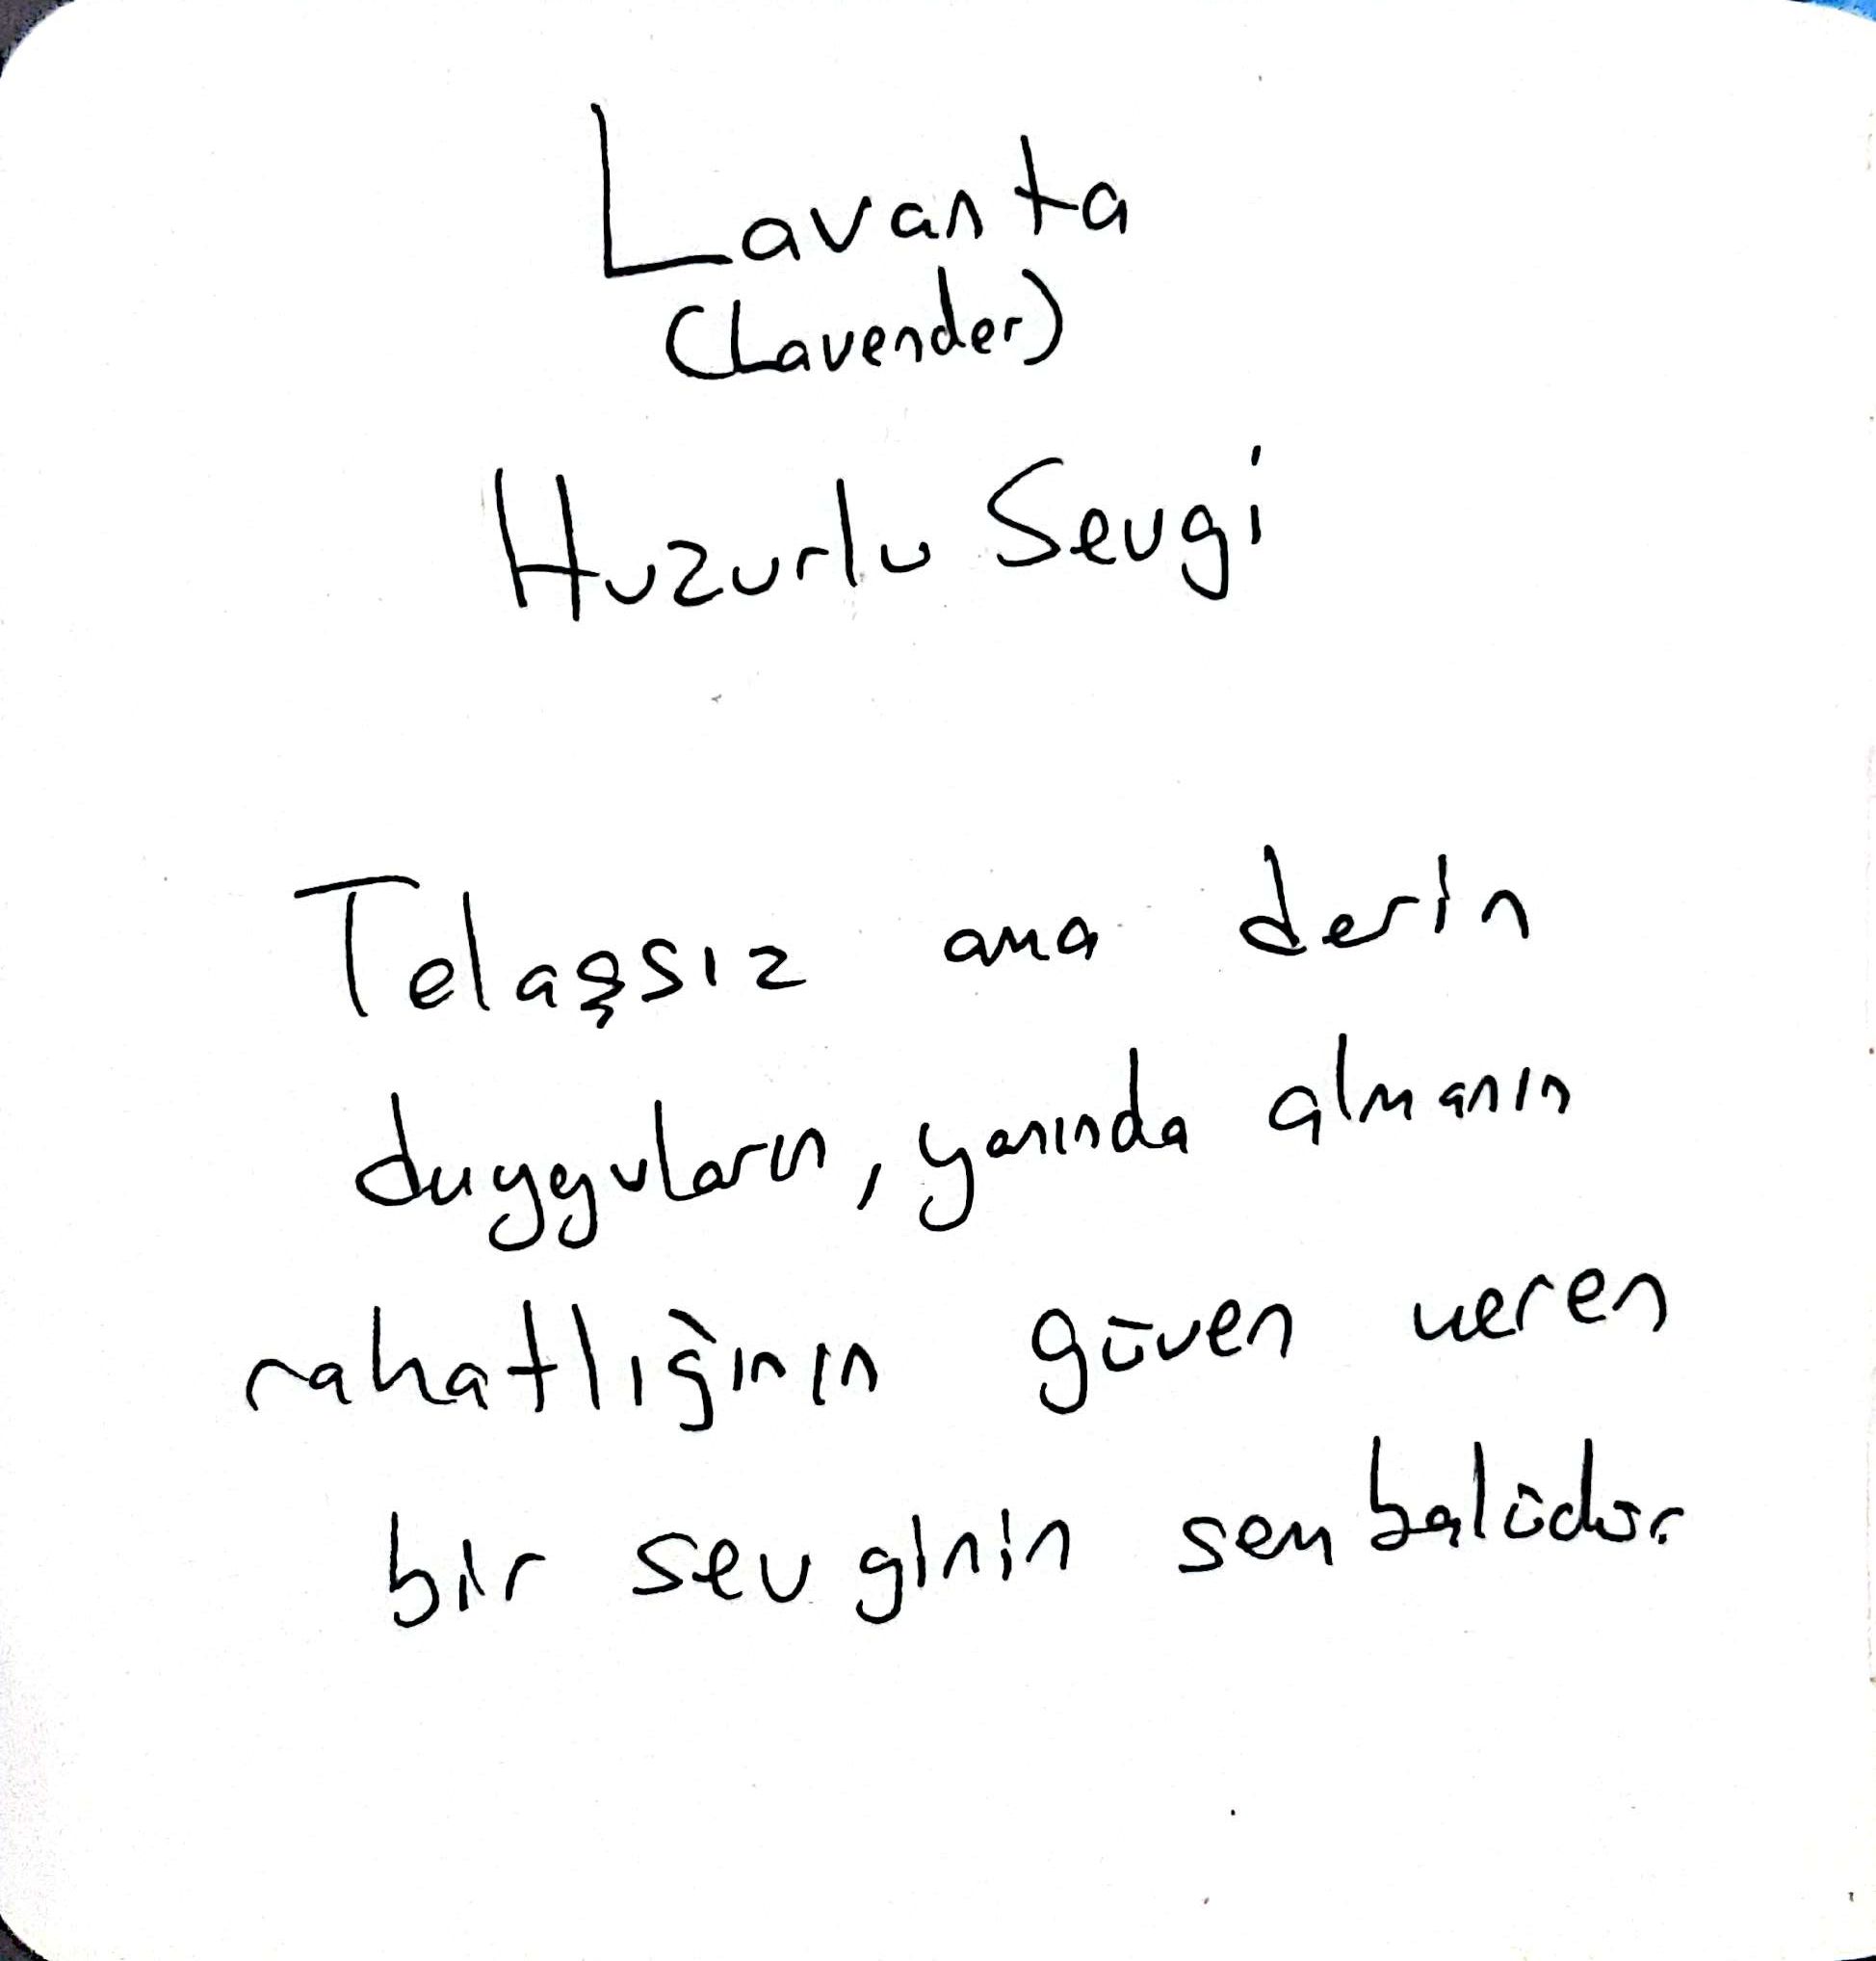 Lavanta
(Lavender)
Huzurlu Sevgi
Telaşsız ama derin
duyguların, yanında almanın
rahatlığının güven veren
bir sevginin sembalüdür